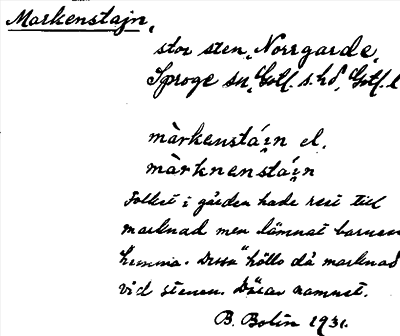 Markenstajn,
stor sten, Norrgarde,
Sproge sn, Gotl. s. hd, Gotl. l
màrkenstáin el.
màrknenstáin
Folket i gården hade rest till
marknad men lämnat barnen
hemma. Dessa höllo då marknad
vid stenen. Därav namnet.
B. Bolin 1931.